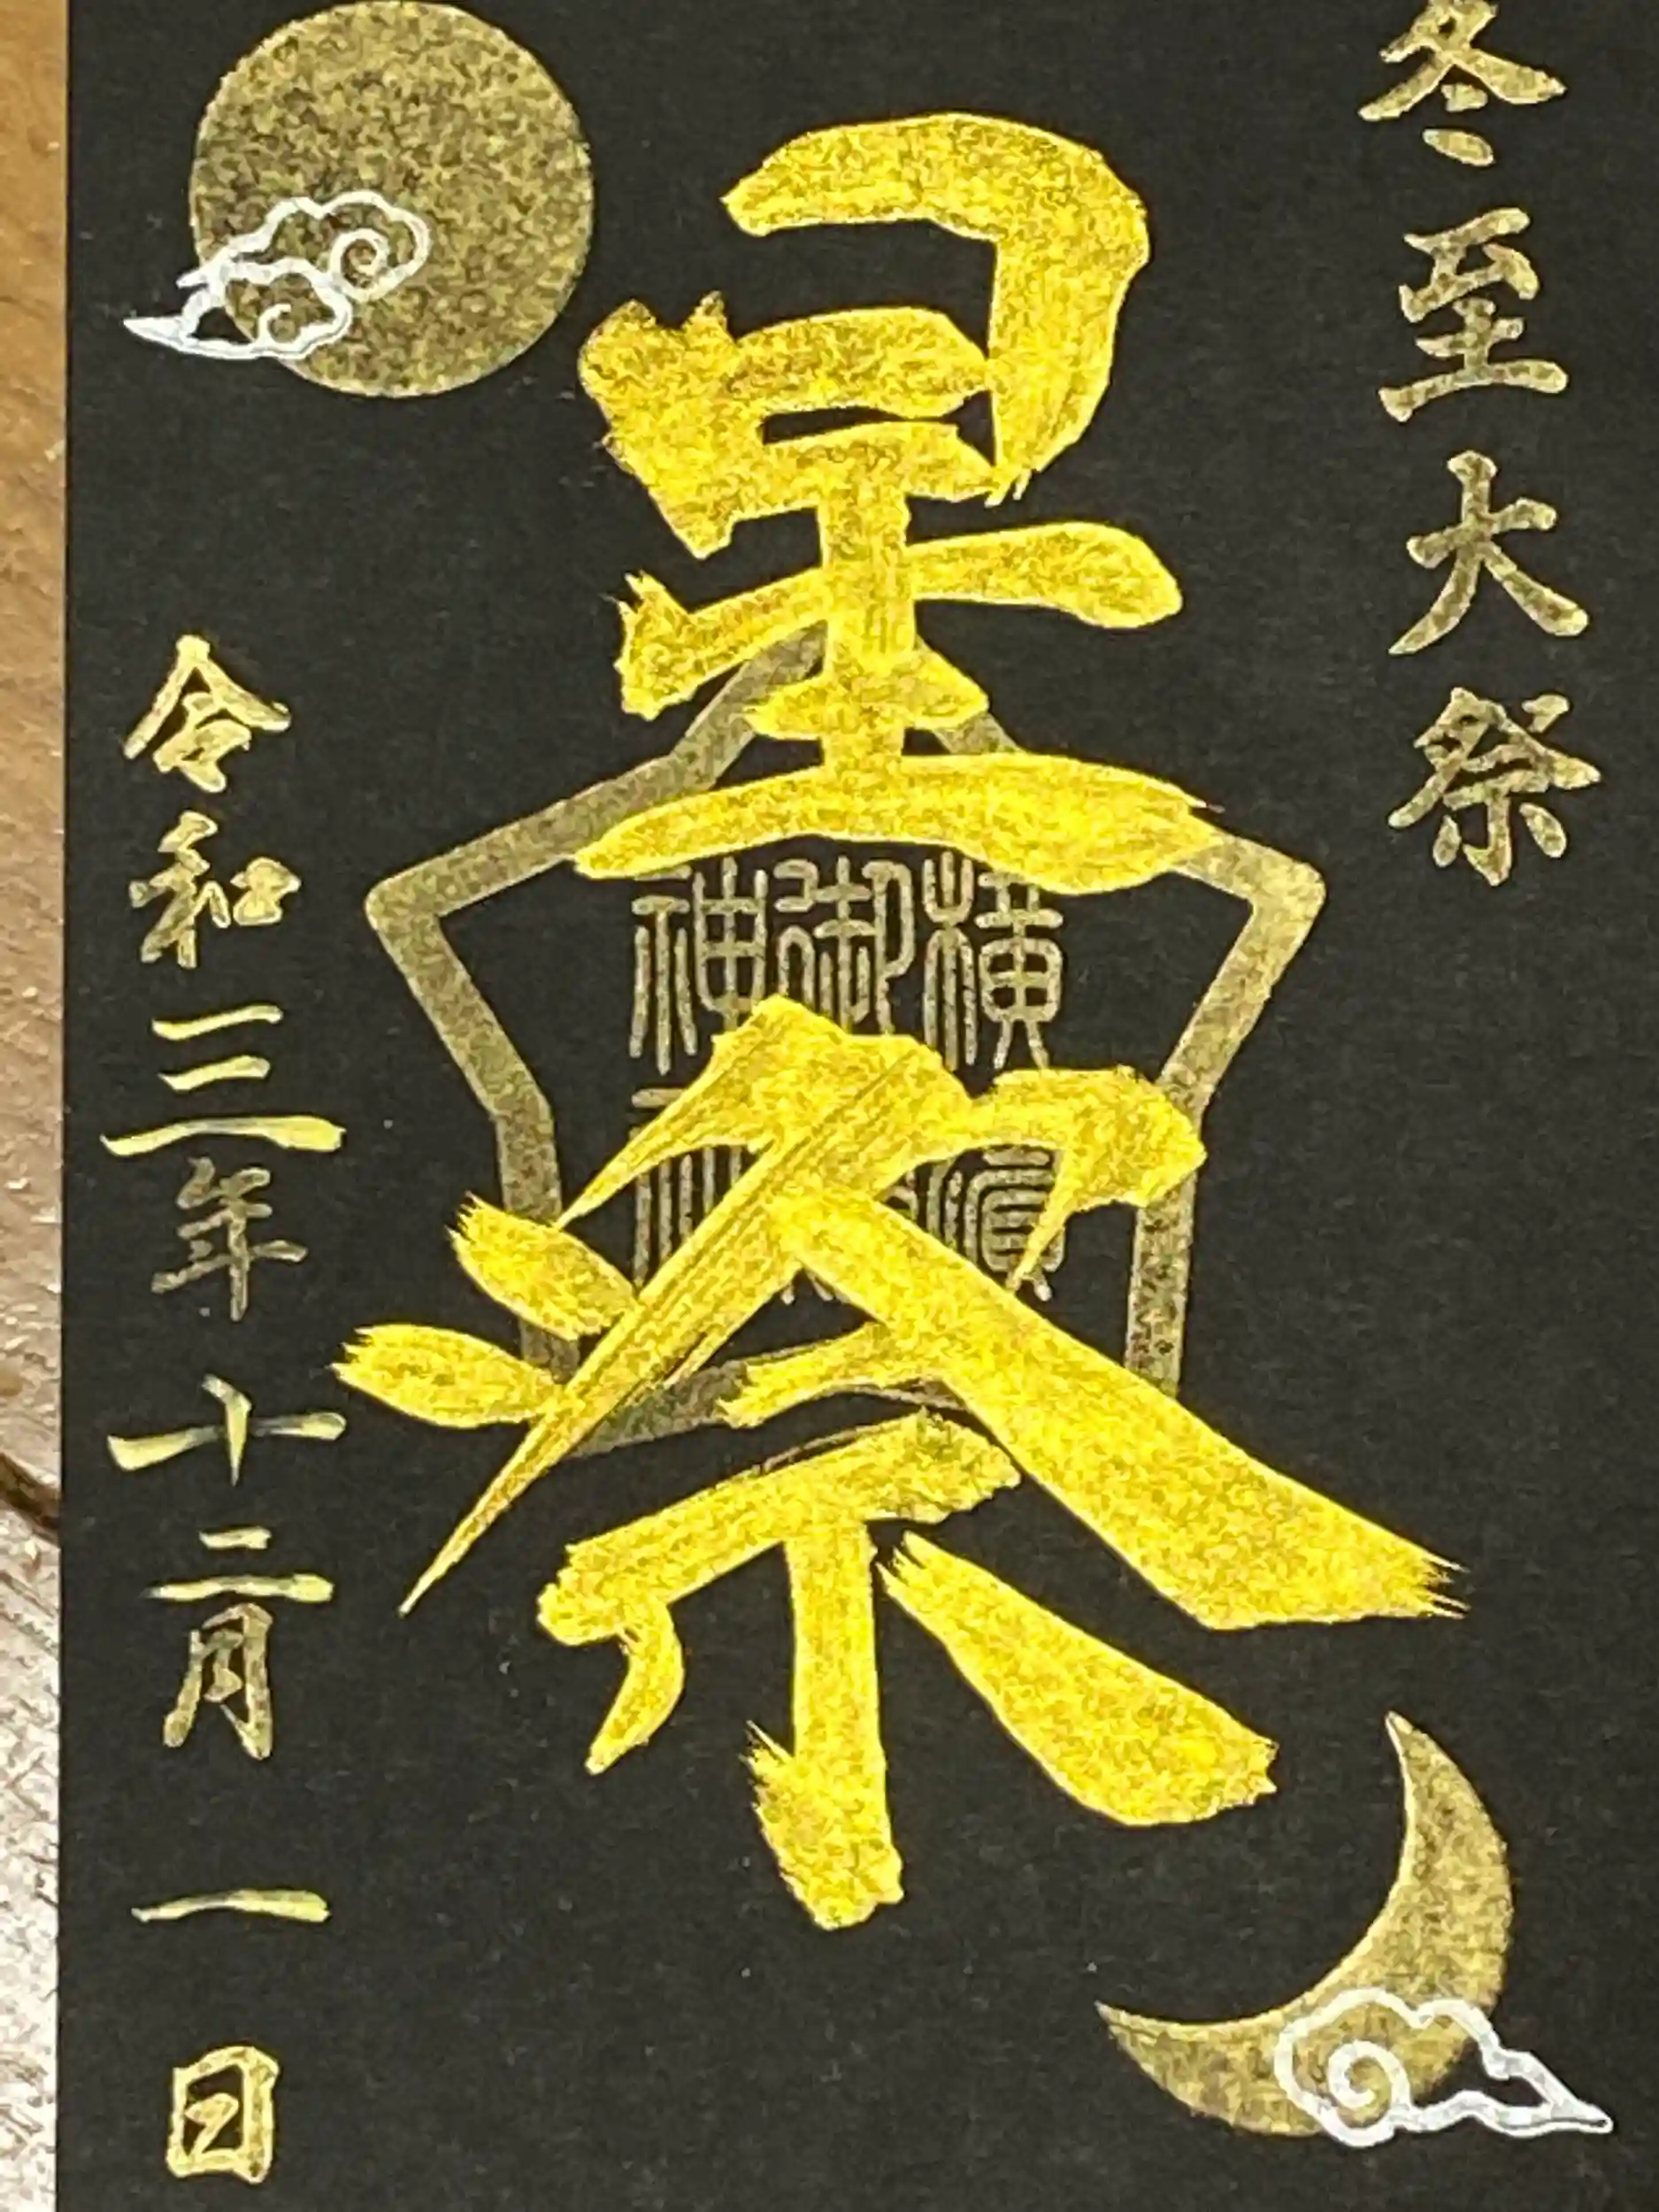 冬至大祭
星祭
横濱御神
令和三年十二月一日